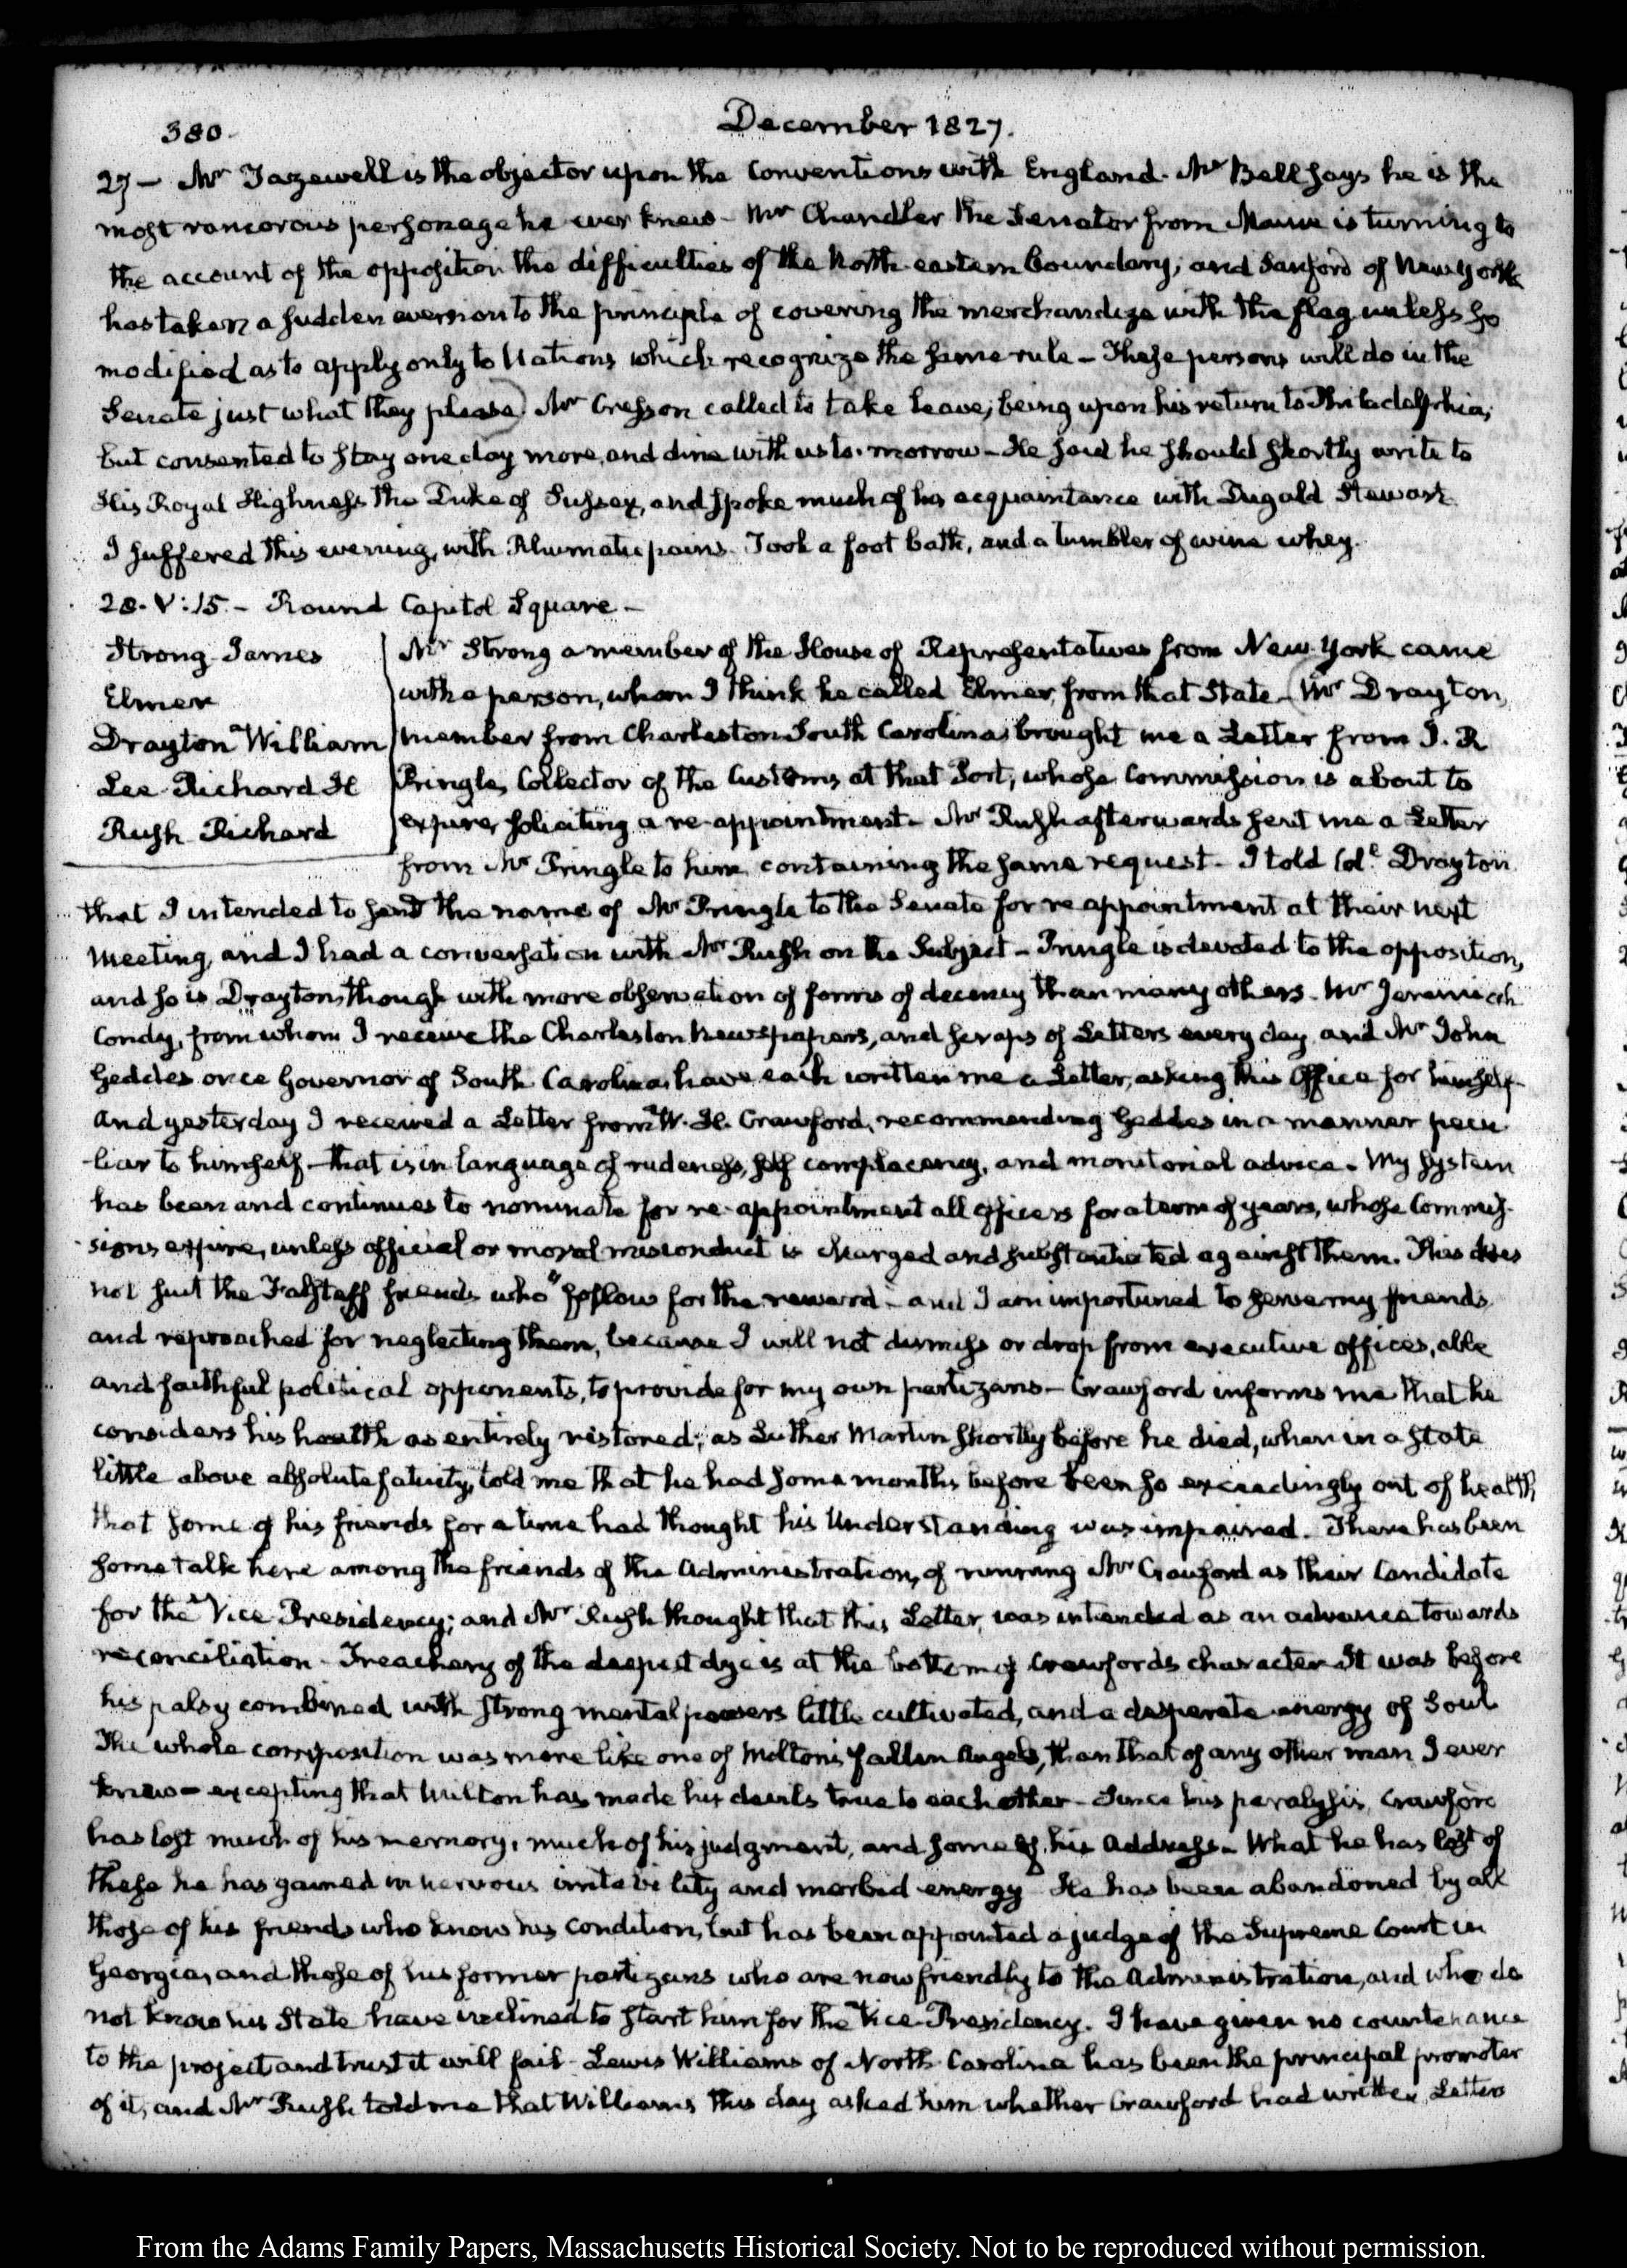 380.
December 1827.
27 — Mr Tazewell is the objector upon the Conventions with England. Mr Bell says he is the
most rancorous personage he ever knew — Mr Chandler the Senator from Maine is turning to
the account of the opposition the difficulties of the North-eastern boundary; and Sanford of New-York
has taken a sudden aversion to the principle of covering the merchandize with the flag unless so
modified as to apply only to Nations which recognize the same rule — These persons will do in the
Senate just what they please) Mr Cresson called to take leave; being upon his return to Philadelphia;
but consented to stay one day more, and dine with us to-morrow — He said he should shortly write to
His Royal Highness the Duke of Sussex, and spoke much of his acquaintance with Dugald Stewart.
I suffered this evening, with Rheumatic pains. Took a foot bath, and a tumbler of wine whey.
28. V:15. — Round Capitol Square —
Strong James
Elmer
Drayton William
Lee Richard H
Rush Richard
Mr Strong a member of the House of Representatives from New-York came
with a person, whom I think he called Elmer, from that State — (Mr Drayton,
member from Charleston South Carolina, brought me a Letter from J. R
Pringle, Collector of the Customs at that Port, whose Commission is about to
expire, soliciting a re-appointment — Mr Rush afterwards sent me a Letter
from Mr Pringle to him containing the same request — I told Col.e Drayton
that I intended to send the name of Mr Pringle to the Senate for re appointment at their next
meeting, and I had a conversation with Mr Rush on the Subject — Pringle is devoted to the opposition,
and so is Drayton, though with more observation of forms of decency than many others. Mr Jeremiah
Condy, from whom I receive the Charleston Newspapers, and scraps of Letters every day and Mr John
Geddes once Governor of South Carolina, have each written me a Letter, asking this Office for himself —
and yesterday I received a Letter from W. H. Crawford, recommending Geddes in a manner pecu
-liar to himself — that is in language of rudeness, self complacency, and monitorial advice. My system
has been and continues to nominate for re-appointment all officers for a term of years, whose Commis-
sions expire, unless official or moral misconduct is charged and substantiated against them. This does
not suit the Falstaff friends who "follow for the reward — and I am importuned to serve my friends
and reproached for neglecting them, because I will not dismiss or drop from executive offices, able
and faithful political opponents, to provide for my own partizans — Crawford informs me that he
considers his health as entirely restored; as Luther Martin shortly before he died, when in a state
little above absolute fatuity, told me that he had some months before been so exceedingly out of health,
that some of his friends for a time had thought his Understanding was impaired. There has been
some talk here among the friends of the Administration, of running Mr Crawford as their Candidate
for the Vice Presidency; and Mr Rush thought that this Letter, was intended as an advance towards
reconciliation — Treachery of the deepest dye is at the bottom of Crawfords character — It was before
his palsy combined with strong mental powers little cultivated, and a desperate energy of Soul
The whole composition was more like one of Milton's fallen Angels, than that of any other man I ever
knew — excepting that Milton has made his devils true to each other — Since his paralysis, Crawford
has lost much of his memory, much of his judgment, and some of his Address — What he has lost of
these he has gained in nervous irritability and morbid energy — He has been abandoned by all
those of his friends who know his condition, but has been appointed a judge of the Supreme Court in
Georgia, and those of his former partizans who are now friendly to the Administration, and who do
not know his State have inclined to start him for the Vice-Presidency. I have given no countenance
to the project and trust it will fail — Lewis Williams of North-Carolina has been the principal promoter
of it, and Mr Rush told me that Williams this day asked him whether Crawford had written Letters
From the Adams Family Papers, Massachusetts Historical Society. Not to be reproduced without permission.